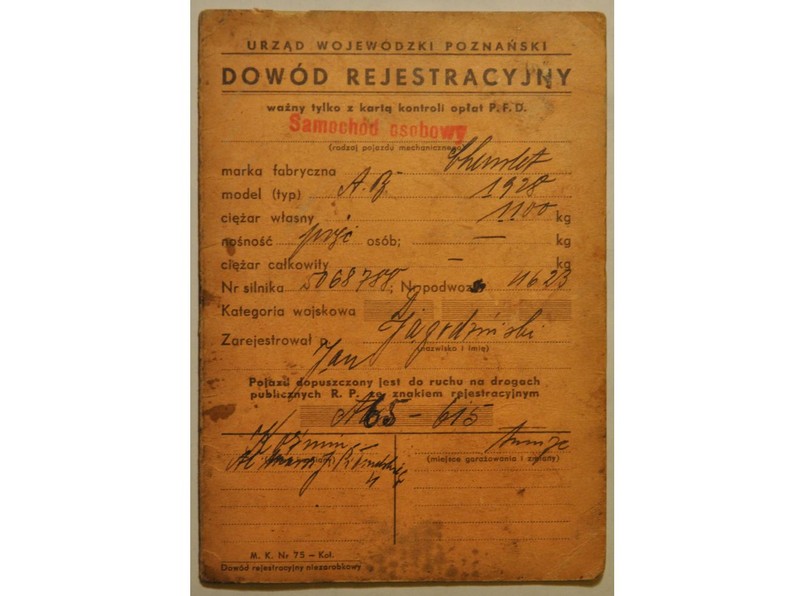 URZĄD WOJEWÓDZKI POZNAŃSKI
DOWÓD REJESTRACYJNY
ważny tylko z kartą kontroli opłat P. F. D.
Samochód osobowy
(rodzaj pojazdu mechanicznego)
marka fabryczna Chevrolet
model (typ) A. B. 1928
ciężar własny 1100 kg
nośność pięć osób; — kg
ciężar całkowity — kg
Nr silnika 5068788; Nr podwozia 11623
Kategoria wojskowa
Zarejestrował a Jagodziński
(nazwisko i imię)
Jan
Pojazd dopuszczony jest do ruchu na drogach
publicznych R. P. ze znakiem rejestracyjnym
A65-615
Koźmin tamże
(miejsce garażowania i zmiany)
M. K. Nr 75 – Kol.
Dowód rejestracyjny niezarobkowy